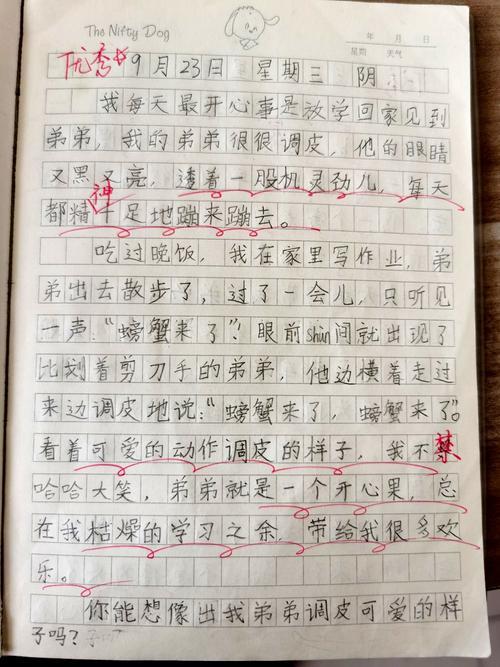 The Nifty Dog
年 月 日
星期 天气
优秀
9月23日 星期三 阴
我每天最开心事是放学回家见到
弟弟，我的弟弟很很调皮，他的眼睛
又黑又亮，透着一股机灵劲儿，每天
神
都精十足地蹦来蹦去。
吃过晚饭，我在家里写作业，弟
弟出去散步了，过了一会儿，只听见
一声："螃蟹来了"！眼前shùn间就出现了
比划着剪刀手的弟弟，他边横着走过
来边调皮地说："螃蟹来了，螃蟹来了"。
看着可爱的动作调皮的样子，我不禁
哈哈大笑，弟弟就是一个开心果，总
在我枯燥的学习之余，带给我很多欢
乐。
你能想像出我弟弟调皮可爱的样
子吗？